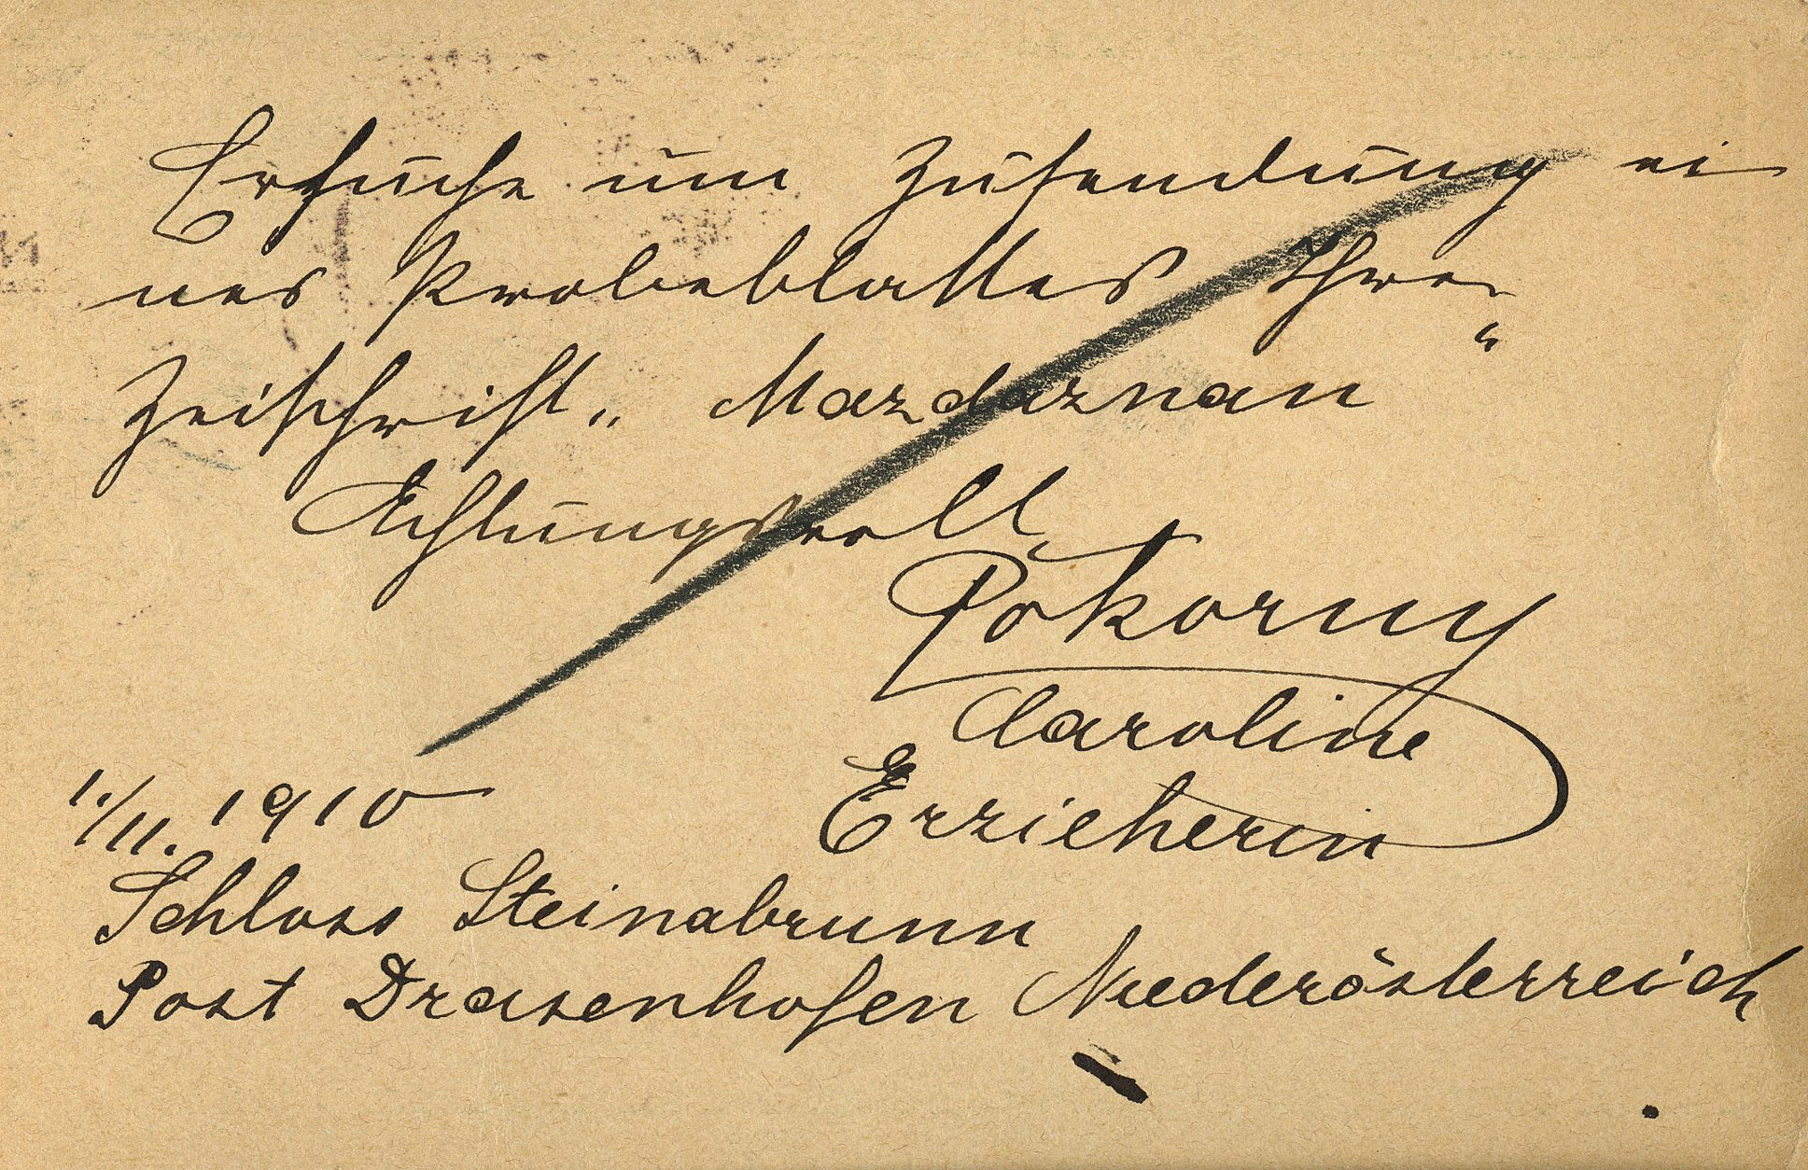 Ersuche um Zusendung ei
nes Probeblattes Ihrer
Zeitschrift „ Mazdaznan “
Achtungsvoll
Pokorny
Caroline
Erzieherin
1./11. 1910
Schloss Steinabrunn
Post Drasenhofen Niederösterreich